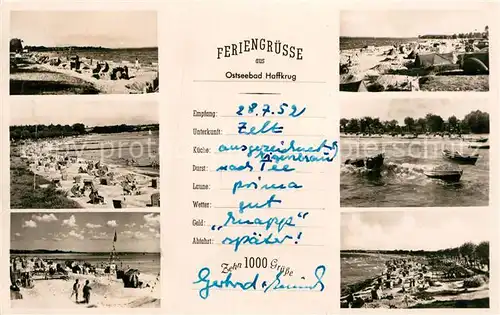 FERIENGRÜSSE
aus
Ostseebad Haffkrug
Empfang: 28.7.52
Unterkunft: Zelt
Küche: ausgezeichnet
Durst: nach Tee
Laune: prima
Wetter: gut
Geld: „knapp"
Abfahrt: später!
Zehn 1000 Grüße
Gerhard